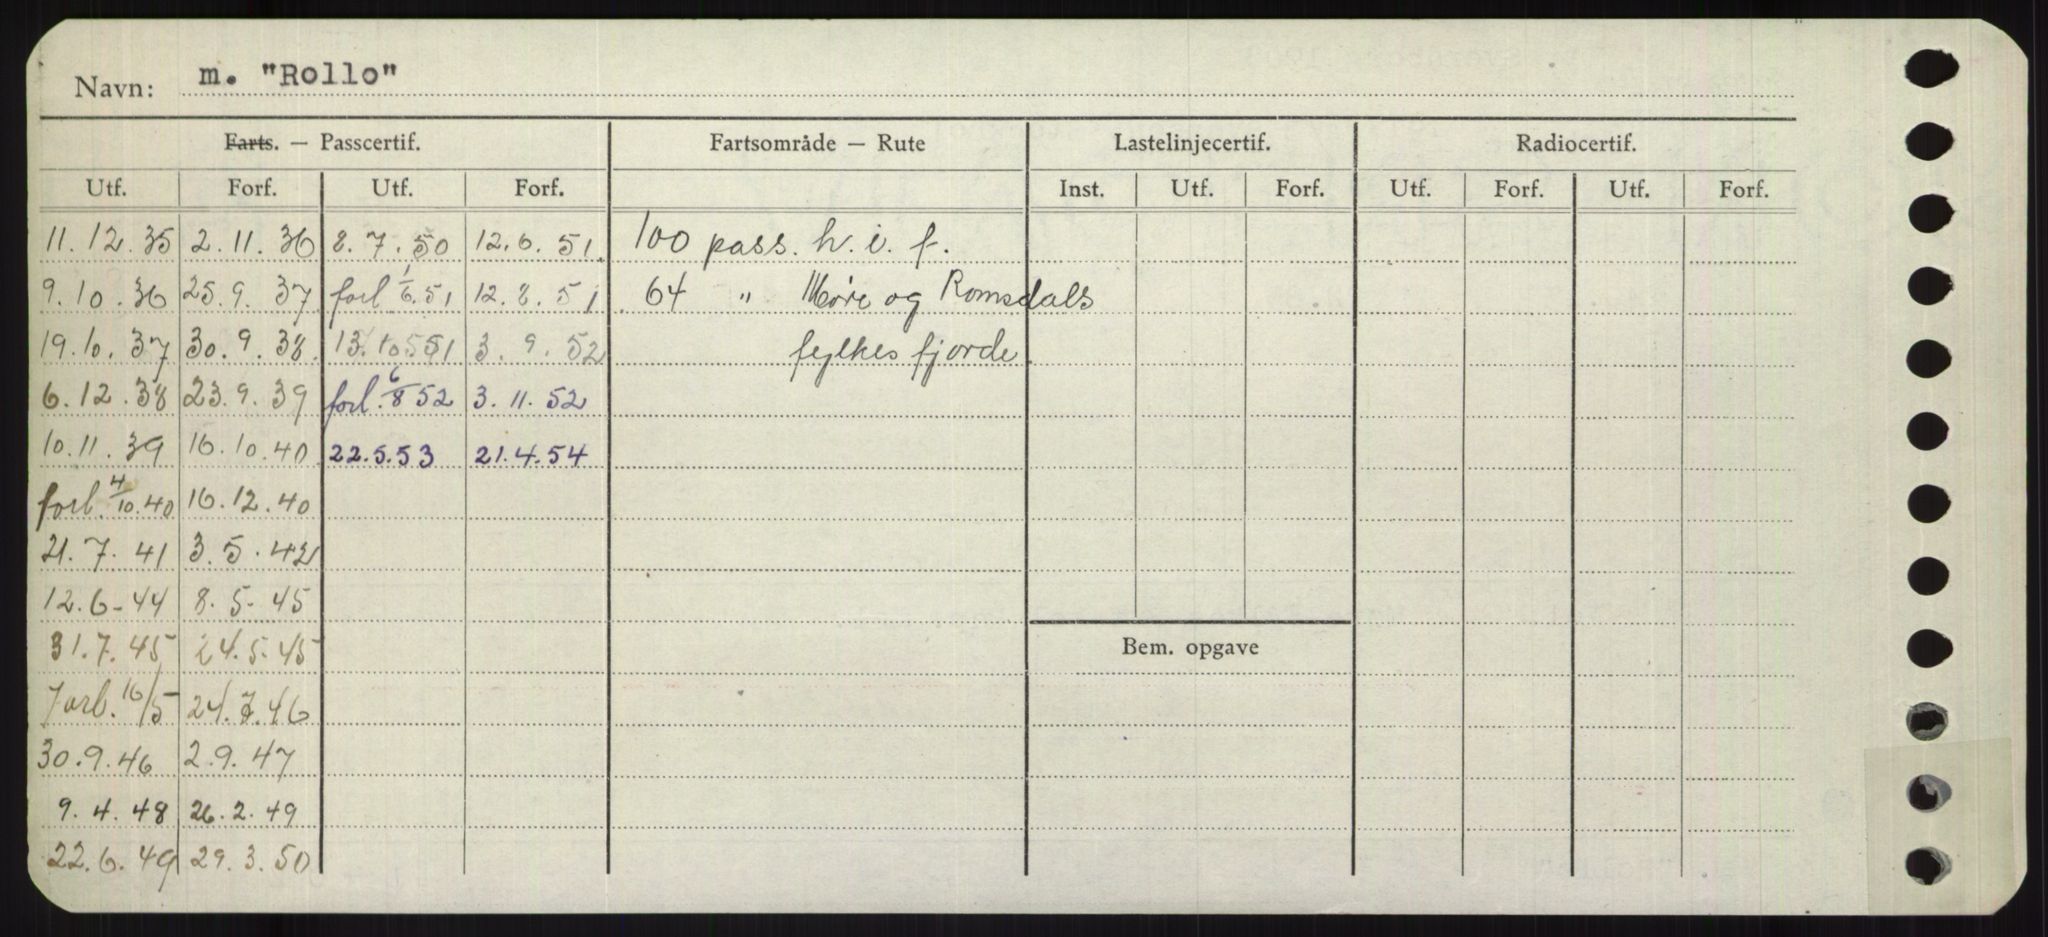 Navn: m. "Rollo"
Farts. — Passcertif. Fartsområde — Rute Lastelinjecertif. Radiocertif.
Utf. Forf. Utf. Forf. Inst. Utf. Forf. Utf. Forf. Utf. Forf.
11.12.35 2.11.36 8.7.50 12.6.51. 100 pass. h.i.f.
9.10.36 25.9.37 forl 1/6.51 12.8.51 64 " Møre og Romsdals
19.10.37 30.9.38. 13.10.51 3.9.52 fylkes fjorde.
6.12.38 23.9.39 forl. 6/8 52 3.11.52
10.11.39 16.10.40 22.5.53 21.4.54
forl. 4/10.40 16.12.40
21.7.41 3.5.42
12.6-44 8.5-45
31.7.45 24.5.45
Forl. 16/5 24.7.46
Bem. opgave
30.9.46 2.9.47
9.4.48 26.2.49
22.6.49 29.3.50